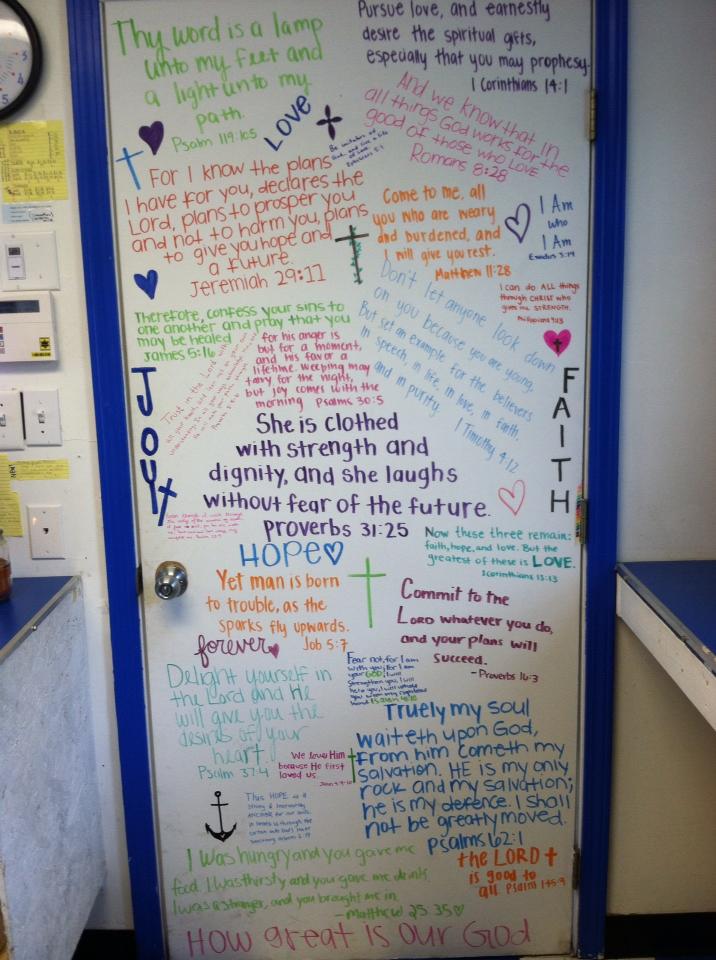 Thy word is a lamp
unto my feet and
a light unto my
path.
Psalm 119:105
Pursue love, and earnestly
desire the spiritual gifts,
especially that you may prophesy.
1 Corinthians 14:1
LOVE
And we know that in
all things God works for the
good of those who LOVE
Romans 8:28
For I know the plans
I have for you, declares the
Lord, plans to prosper you
and not to harm you, plans
to give you hope and
a future.
Jeremiah 29:11
Come to me, all
you who are weary
and burdened, and
I will give you rest.
Matthew 11:28
I Am
Who
I Am
Exodus 3:14
I can do ALL things
through CHRIST who
gives me STRENGTH.
Philippians 4:13
Therefore, confess your sins to
one another and pray that you
may be healed
James 5:16
for his anger is
but for a moment,
and his favor a
lifetime. Weeping may
tarry for the night,
but joy comes with the
morning Psalms 30:5
Don't let anyone look down
on you because you are young.
But set an example for the believers
in speech, in life, in love, in faith,
and in purity.
1 Timothy 4:12
Trust in the Lord
JOY
FAITH
She is clothed
with strength and
dignity, and she laughs
without fear of the future.
Proverbs 31:25
HOPE
Now these three remain:
faith, hope, and love. But the
greatest of these is LOVE.
1 Corinthians 13:13
Yet man is born
to trouble, as the
sparks fly upwards.
Job 5:7
Commit to the
LORD whatever you do,
and your plans will
succeed.
-Proverbs 16:3
forever
Fear not, for I am
with you; for I am
your GOD; I will
strengthen you, I will
help you, I will
Delight yourself in
the Lord and He
will give you the
desires of your
heart.
Psalm 37:4
We love Him
because He first
loved us.
Truely my soul
waiteth upon God,
from him cometh my
salvation. HE is my only
rock and my salvation;
he is my defence. I shall
not be greatly moved.
Psalms 62:1
This HOPE is a
I was hungry and you gave me
food. I was thirsty and you gave me drink.
I was a stranger, and you brought me in.
-Matthew 25:35
the LORD
is good to
all Psalm 145:9
How great is our God